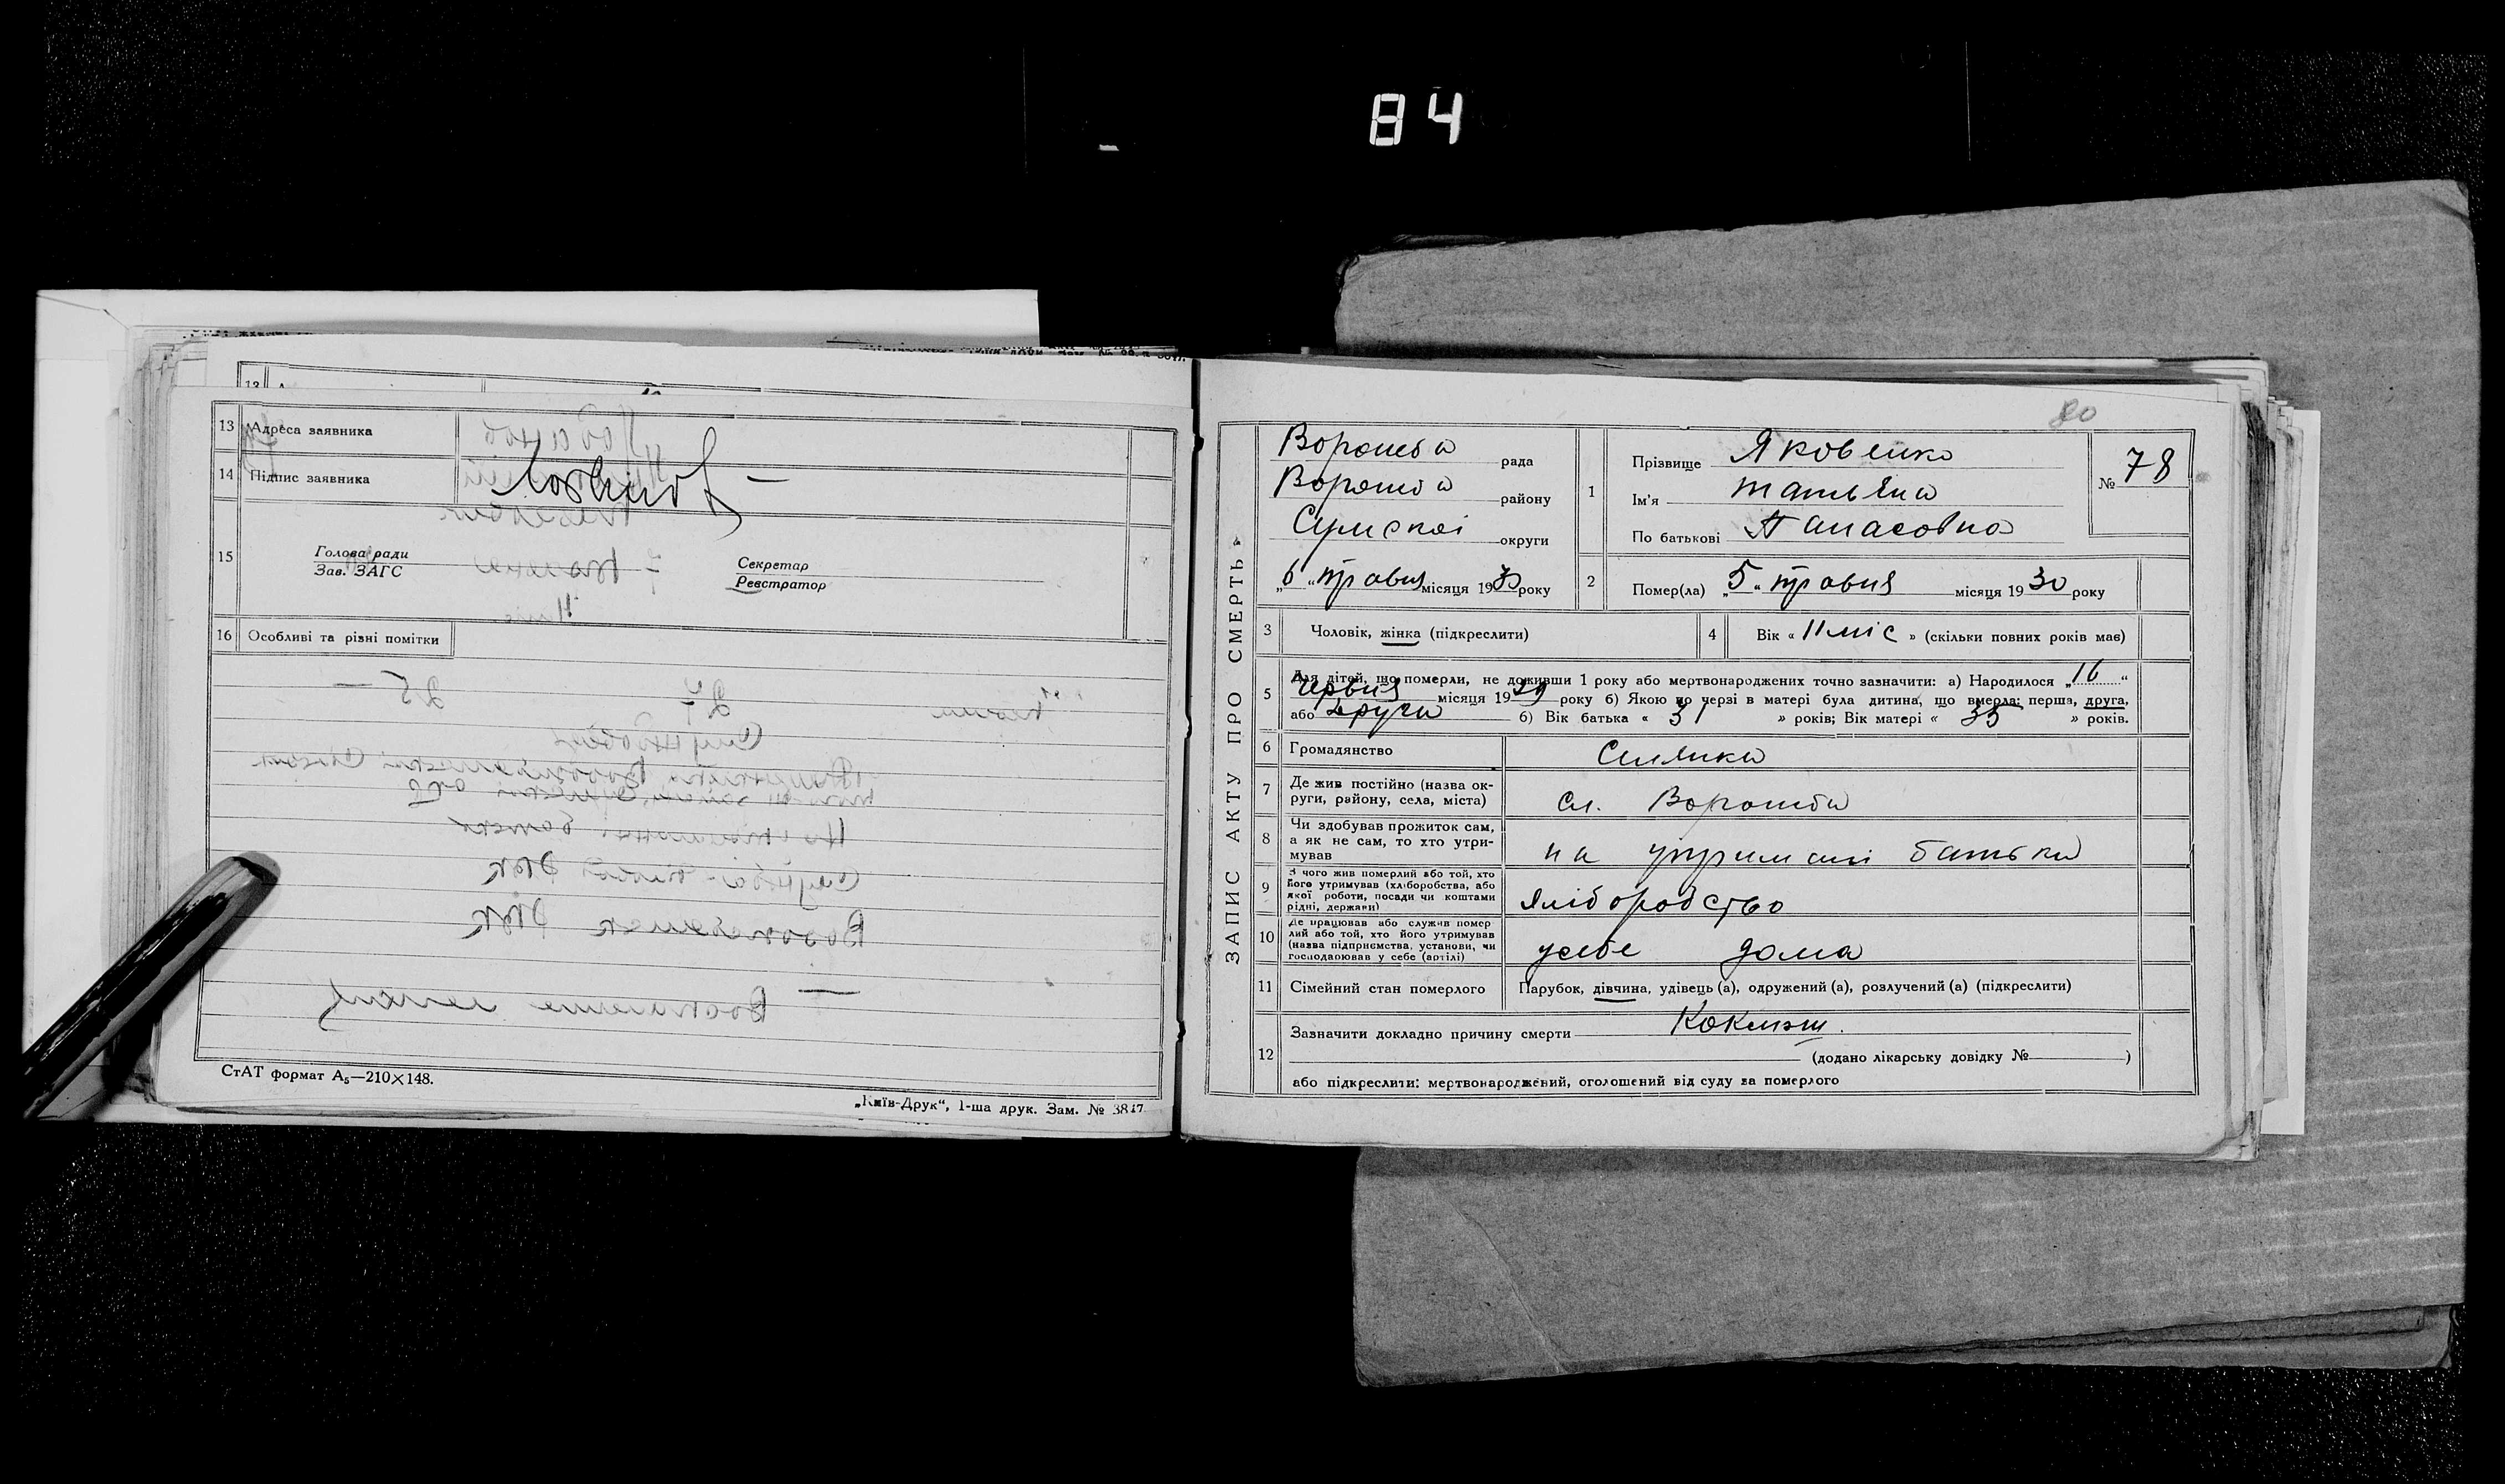 84
13 Адреса заявника
14 Підпис заявника
15 Голова ради
Зав. ЗАГС
Секретар
Реєстратор
16 Особливі та різні помітки
СтАТ формат А₅—210×148.
„Київ-Друк“, 1-ша друк. Зам. № 3847
80
ЗАПИС АКТУ ПРО СМЕРТЬ
Ворожба рада
Ворожба району
Сумскої округи
„6“ травня місяця 1930 року
1 Прізвище Яковенко
Ім'я Татьяна
По батькові Панасовна
№ 78
2 Помер(ла) „5“ травня місяця 1930 року
3 Чоловік, жінка (підкреслити)
4 Вік « 11 міс » (скільки повних років має)
5 Для дітей, що померли, не доживши 1 року або мертвонароджених точно зазначити: а) Народилося „16“
червня місяця 1929 року б) Якою по черзі в матері була дитина, що вмерла: перша, друга,
або друга б) Вік батька « 31 » років; Вік матері « 35 » років.
6 Громадянство Селянка
7 Де жив постійно (назва округи, району, села, міста) сл. Ворожба
8 Чи здобував прожиток сам, а як не сам, то хто утримував на утримані батька
9 З чого жив померлий або той, хто його утримував (хліборобства, або якої роботи, посади чи коштами рідні, держави) хліборобство
10 Де працював або служив померлий або той, хто його утримував (назва підприємства, установи, чи господарював у себе (артілі) усебе дома
11 Сімейний стан померлого Парубок, дівчина, удівець (а), одружений (а), розлучений (а) (підкреслити)
12 Зазначити докладно причину смерти Коклюш.
(додано лікарську довідку № )
або підкреслити: мертвонароджений, оголошений від суду за померлого